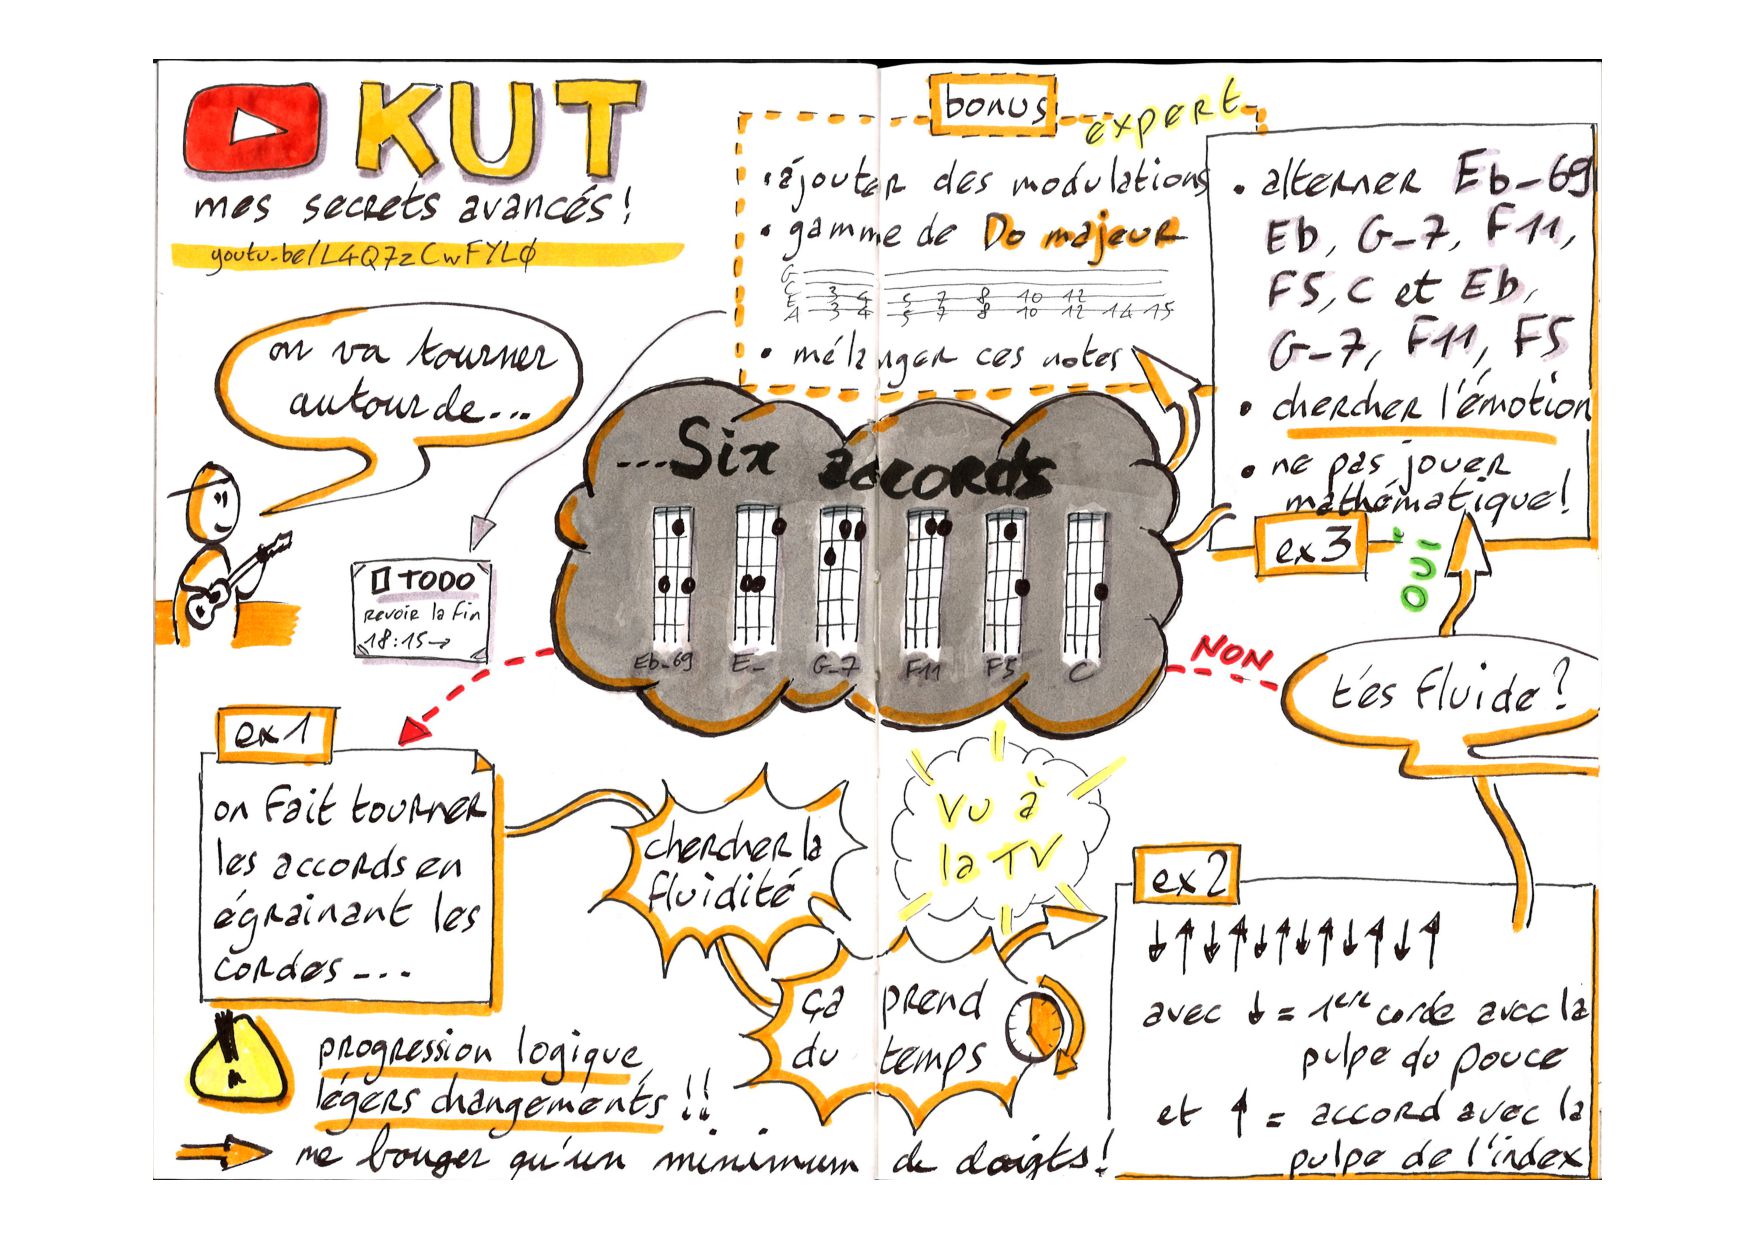 KUT
mes secrets avancés !
youtu.be/L4Q7zCwFYL0
on va tourner
autour de...
TODO
revoir la fin
18:15→
bonus
expert
• ajouter des modulations
• gamme de Do majeur
G
C 3 4 5 7 8 10 12
E
A 3 4 5 7 8 10 12 14 15
• mélanger ces notes
...Six accords
Eb_69 E_ G_7 F11 F5 C
• alterner Eb_69
Eb, G_7, F11,
F5, C et Eb,
G_7, F11, F5
• chercher l'émotion
• ne pas jouer
mathématique !
ex3
OUI
NON
t'es fluide ?
ex1
on fait tourner
les accords en
égrainant les
cordes...
chercher la
fluidité
vu à
la TV
ça prend
du temps
ex2
↓↑↓↑↓↑↓↑↓↑↓↑
avec ↓ = 1ere corde avec la
pulpe du pouce
et ↑ = accord avec la
pulpe de l'index
progression logique,
légers changements !!
→ ne bouger qu'un minimum de doigts !